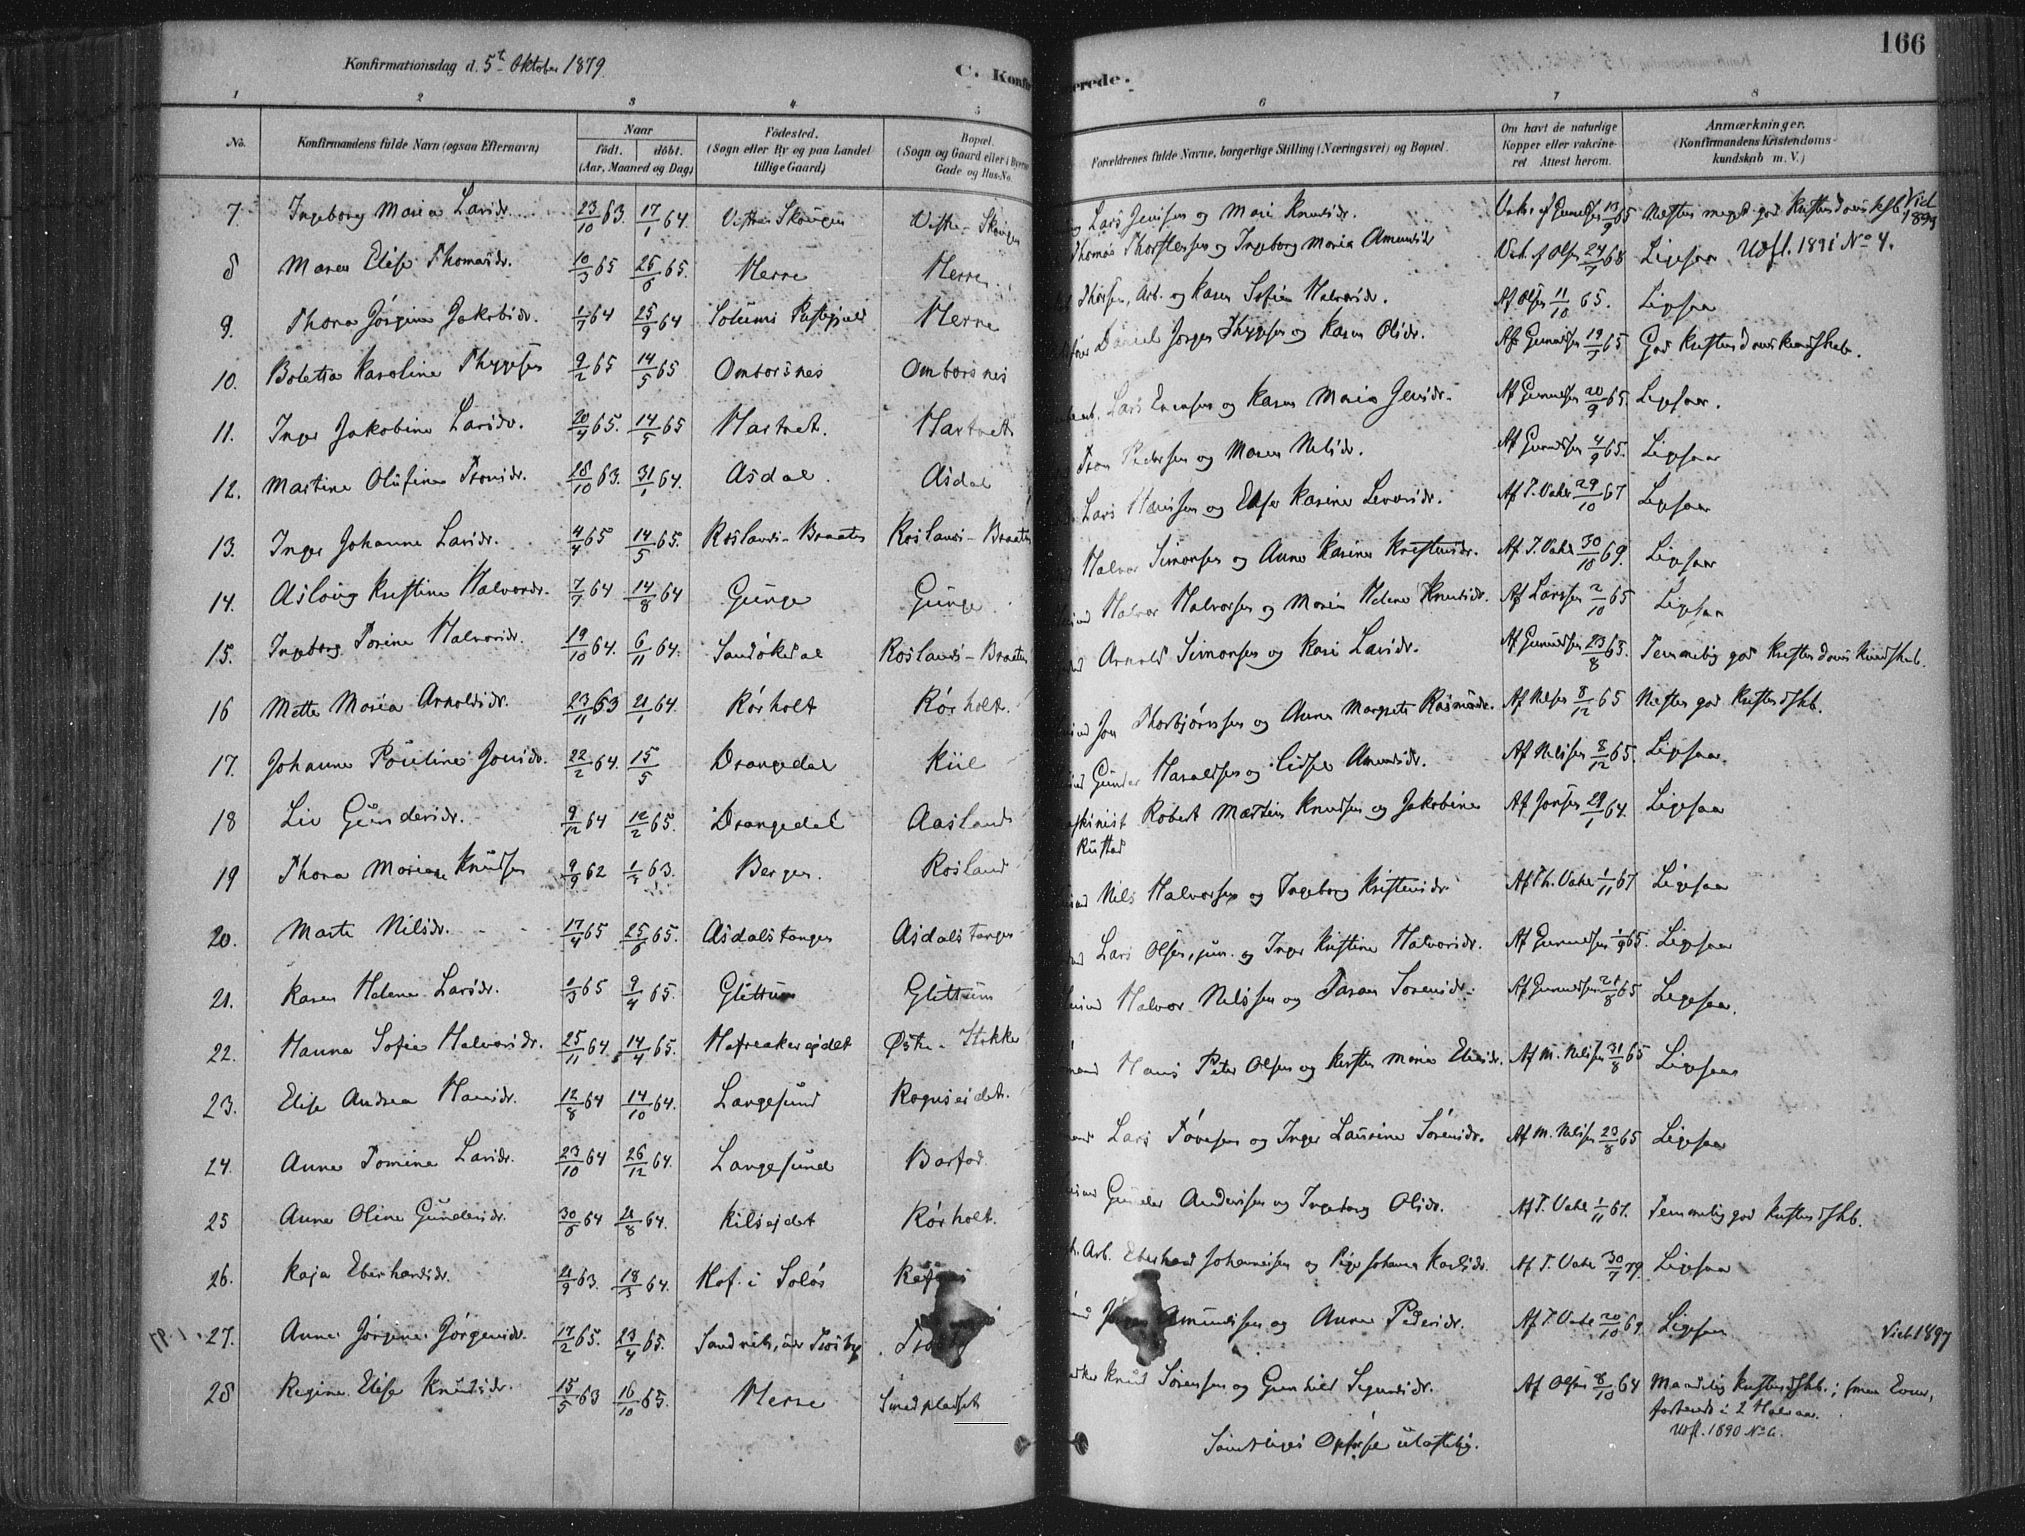 166
Konfirmationsdag d. 5t Oktober 1879.
C. Konfirmerede.
1 2 3 4 5 6 7 8
No. Konfirmandens fulde Navn (ogsaa Efternavn) Naar Födested. Bopæl. Forældrenes fulde Navne, borgerlige Stilling (Næringsvei) og Bopæl. Om havt de naturlige Anmærkninger.
født. døbt. (Sogn eller By og paa Landet (Sogn og Gaard eller i Byerne Kopper eller vakcine- (Konfirmandens Kristendoms-
(Aar, Maaned og Dag) tillige Gaard) Gade og Hus-No. ret Attest herom. kundskab m. V.)
7. Ingeborg Maria Larsdr. 23/10 63. 17/1 64. Vestre Skougen Vestre-Skougen Lars Jensen og Mari Knudsdr. Vakc. af Gunnelsen 13/9 65 Næsten meget god Kristendomskdsk. Vid 1894
8 Maren Elise Thomasdr. 10/3 65 25/6 65. Herre Herre Thomas Thorstensen og Ingeborg Maria Amundsdr Vak. af Olsen 24/7 68 Ligesaa Udfl. 1891 No 4.
9. Thora Jørgine Jakobsdr. 1/7 64 25/9 64 Solums Præstegjeld Herre Thorsen, Arb. og Karen Sofie Halvorsdr. Af Olsen 11/10 65. Ligesaa
10. Boletta Karoline Thygesen 9/2 65 14/5 65 Omborsnes Omborsnes Daniel Jørgen Thygesen og Karen Olsdr. Af Gunnelsen 19/9 65 God Kristendomskundskab.
11. Inger Jakobine Larsdr. 20/4 65. 14/5 65 Hartvet. Hartvet Lars Evensen og Karen Maria Jensdr. Af Gunnelsen 20/9 65. Ligesaa.
12. Martine Olufine Tronsdr. 18/10 63. 31/1 64. Asdal Asdal Tron Pedersen og Maren Nilsdr. Af Gunnelsen 4/9 65. Ligesaa
13. Inger Johanne Larsdr. 4/4 65 14/5 65. Roslands-Braaten Roslands-Braaten Lars Hansen og Else Karine Larsdr. Af T. Vahl 29/10 67 Ligesaa
14. Aslaug Kristine Halvorsdr. 7/7 64 14/8 64 Gunge Gunge Halvor Simonsen og Anne Karine Kristensdr. Af T. Vahl 30/10 69. Ligesaa
15. Ingeborg Torine Halvorsdr. 19/10 64. 6/11 64. Sandøkedal Roslands-Braaten Halvor Halvorsen og Maria Helene Knudsdr. Af Larssen 2/10 65 Ligesaa
16 Mette Maria Arnoldsdr. 23/11 63 21/1 64. Rørholt Rørholt. Arnold Simonsen og Kari Larsdr. Af Gunnelsen 23/8 65. Temmelig god Kristendomskundskab.
17. Johanne Pouline Jonsdr. 22/2 64. 15/5 Drangedal Kiil Jon Thorbjørnsen og Anne Margrete Rasmusdr. Af Nilsen 8/12 65 Næsten god Kristendskb.
18 Liv Gundersdr. 9/12 64 12/2 65. Drangedal Aasland Gunder Haraldsen og Lidsel Amundsdr. Af Nilsen 8/12 65. Ligesaa.
19 Thora Mariane Knudsen 9/9 62 1/3 63. Bergen. Rosland Maskinist Robert Martin Knudsen og Jakobine Rustad Af Jonsen 29/1 64. Ligesaa
20. Marte Nilsdr. 17/4 65 25/6 65. Asdalstangen Asdalstangen Nils Halvorsen og Ingeborg Kristensdr. Af Th. Vahl 1/11 67 Ligesaa
21. Karen Helene Larsdr. 2/3 65 9/4 65. Glittum Glittum Lars Olsen, jun. og Inger Kristine Halvorsdr. Af Gunnelsen 1/9 65. Ligesaa
22. Hanna Sofie Halvorsdr. 25/11 64. 14/4 65. Hafreakereidet Østre-Stokke Halvor Nilsen og Taran Sørensdr. Af Gunnelsen 21/8 65 Ligesaa.
23. Elise Andrea Hansdr. 12/8 64 14/10 64. Langesund Rognseidet. Hans Peter Olsen og Kirsten Maria Eliasdr. Af M. Nilsen 31/8 65 Ligesaa
24. Anne Tomine Larsdr. 23/10 64 26/12 64. Langesund Barfod Lars Tovesen og Inger Laurine Sørensdr. Af M. Nilsen 23/8 65 Ligesaa
25 Anne Oline Gundersdr. 30/6 64 21/8 64. Kilsejdet Rørholt. Gunder Andersen og Ingeborg Olsdr. Af T. Vahl 1/11 67. Temmelig god Kristendskb.
26. Kaja Eberhardsdr. 21/9 63. 18/5 64. Hof i Solør Arb. Eberhard Johannessen og Pige Johanne Karlsdr. Af T. Vahl 30/7 79. Ligesaa
27. Anne Jørgine Jørgensdr. 17/2 65. 23/4 65. Sandnes, Amundsen og Anne Pedersdr. Af T. Vahl 20/10 69. Ligesaa Vid. 1897
28 Regine Elise Knudsdr. 15/5 63 16/10 65. Herre Smedpladset Knud Sørensen og Gunhild Segundsdr. Af Olsen 8/10 64 Maadelig Kristendskb.; smaa Evner,
forberedt i 2 Halvaar.
Udfl. 1890 No 6.
Samtliges Opførsel ulastelig.